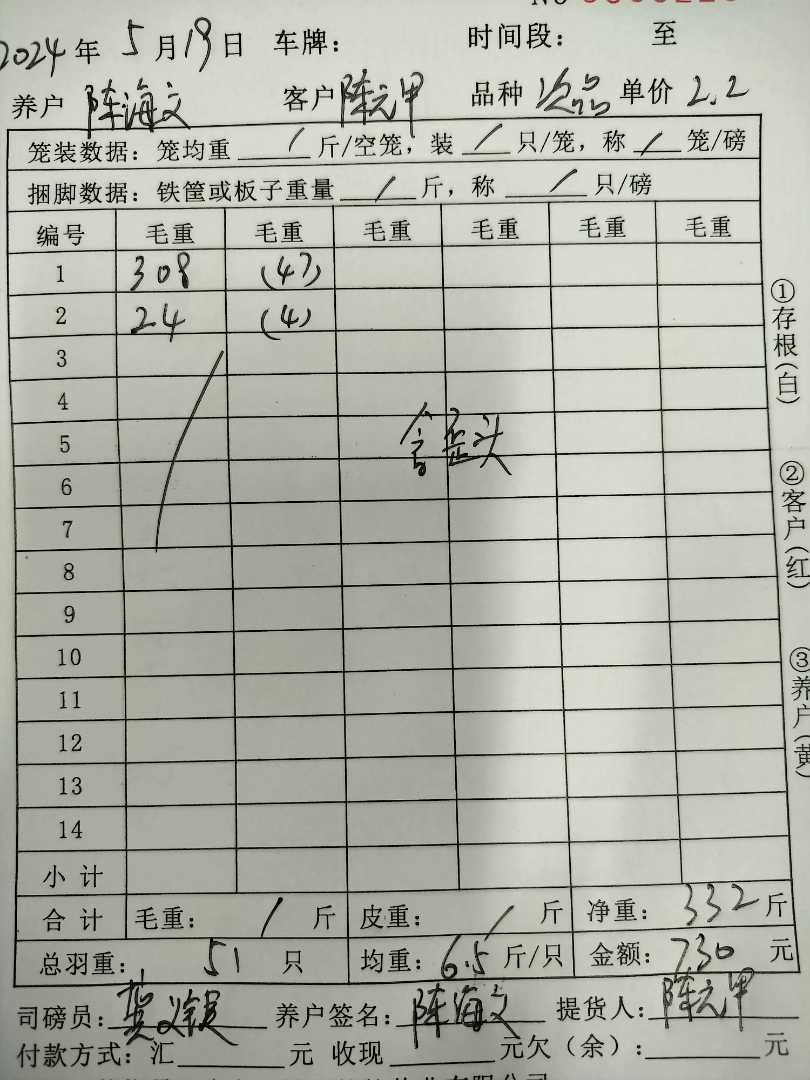 2024年5月19日 车牌： 时间段： 至
养户 陈海文 客户 陈元甲 品种 次品 单价 2.2
笼装数据：笼均重 / 斤/空笼，装 / 只/笼，称 / 笼/磅
捆脚数据：铁筐或板子重量 / 斤，称 / 只/磅
编号 毛重 毛重 毛重 毛重 毛重 毛重
1 308 (47)
2 24 (4)
3
4
5 含歪头
6
7
8
9
10
11
12
13
14
小计
合计 毛重： / 斤 皮重： / 斤 净重： 332 斤
总羽重： 51 只 均重： 6.5 斤/只 金额： 730 元
司磅员： 养户签名： 陈海文 提货人： 陈元甲
付款方式：汇 元 收现 元欠（余）： 元
①存根（白）
②客户（红）
③养户（黄）